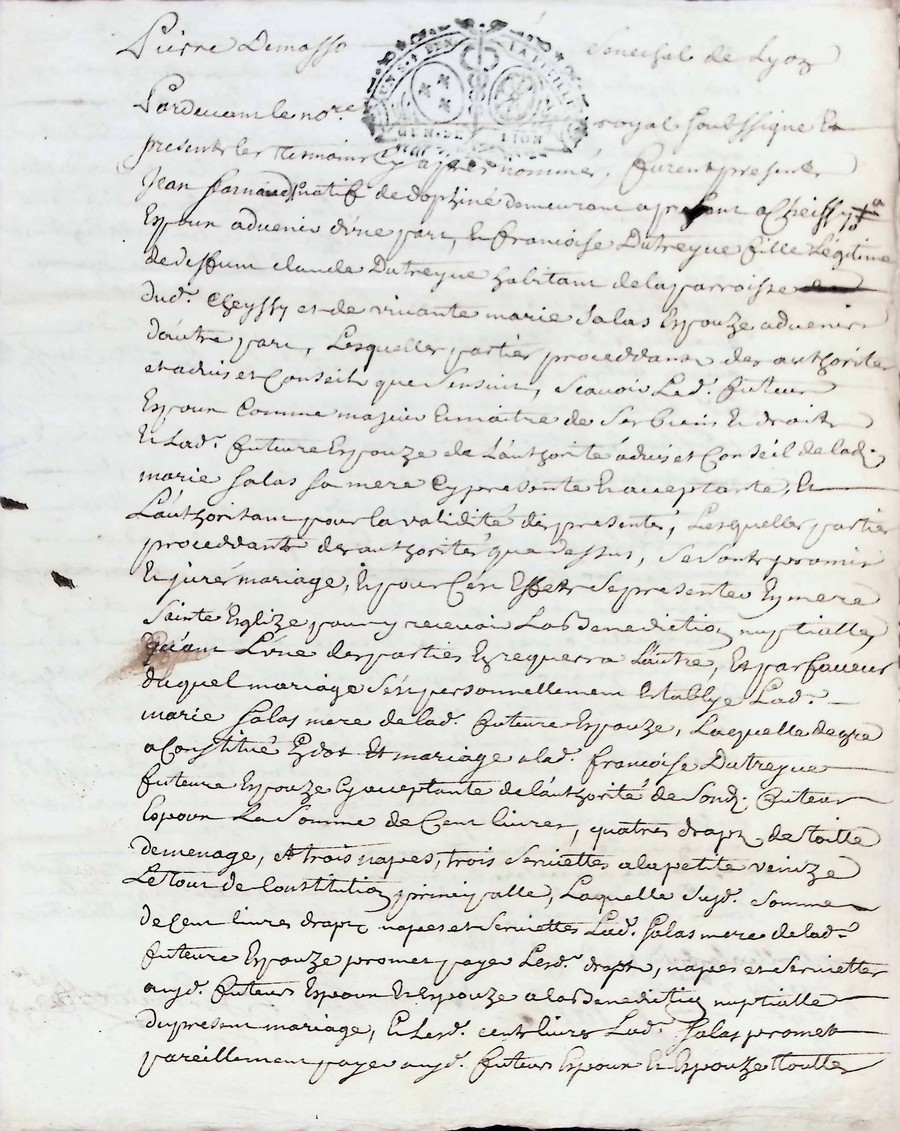 Pierre Demasso Senechal de Lyon
GEN. DE LION
Pardevant le no.re royal soubssigné Et
presents les tesmoins Cy apres nommés, furent presents
Jean natif de dophiné demeurant a present a Cheissy
Espoux advenir d'vne part, et francoise Dutreyue fille Légitime
de deffunt claude Dutreyue habitant de la parroisse
dud. Cheyssy et de viuante marie Salas Espouze advenir
d'autre part, Lesquelles parties proceddant des authorités
et aduis et Conseil que S'ensuit, scauoir Led. futeur
Espoux Comme majeur Et maitre de Ses biens Et droits
Et Lad. future Espouze de L'authorité aduis et Conseil de lad.
marie Salas sa mere Cy presente Et acceptante, Et
L'authorisant pour la validité des presentes, Lesquelles parties
proceddants des authorités que dessus, se sont promis
Et juré mariage, Et pour Cest Effet Se presenter En mere
Sainte Esglize pour y recevoir La Benediction nuptialle,
quant L'vne des parties En requerra L'autre, Et par faueur
duquel mariage S'est personnellement Establye Lad.
marie Salas mere de lad. future Espouze, Laquelle de gré
a Constitué En dot Et mariage a lad. francoise Dutreyue
future Espouze Cy acceptante de l'authorité de Sond. futeur
Espoux La Somme de Cent livres, quatres draps de toille
de menage, et trois napes, trois Serviettes a la petite venize
Le tout de Constitution principalle, Laquelle Susd. Somme
de Cent livres draps napes et Serviettes Lad. Salas mere de lad.
future Espouze promet payer Lesd. draps, napes et Serviettes
auxd. futeurs Espoux Et Espouze a la Benediction nuptialle
du present mariage, Et Lesd. cent livres Lad. Salas promet
pareillement payer auxd. futeurs Espoux Et Espouze touttes